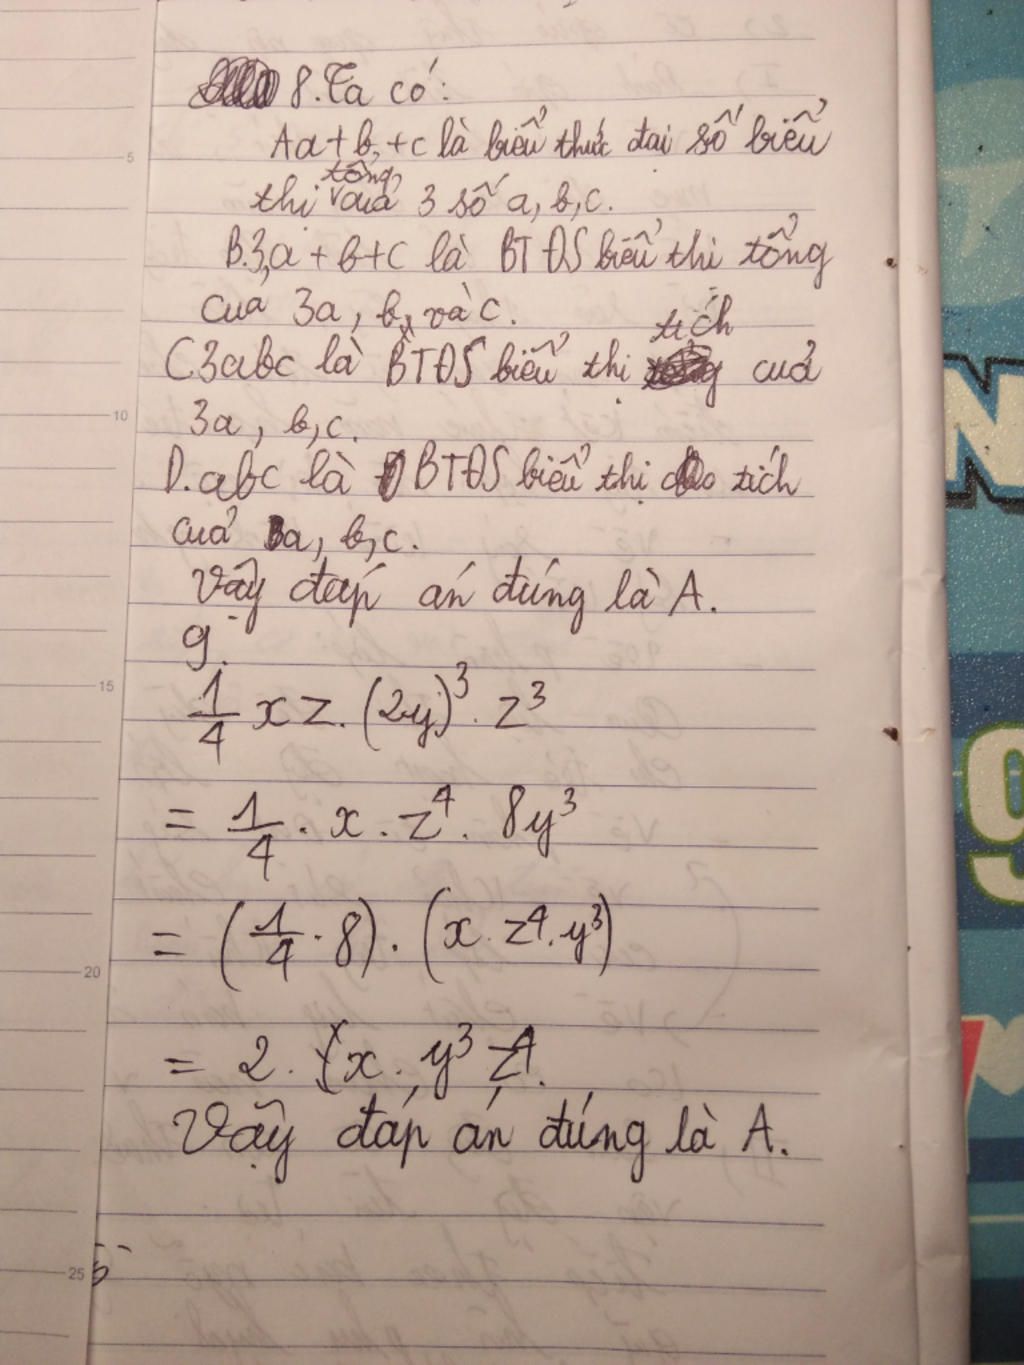 8. Ta có:
A a + b + c là biểu thức đại số biểu
thị tổng của 3 số a, b, c.
B. 3a + b + c là BTĐS biểu thị tổng
của 3a, b, và c.
C 3abc là BTĐS biểu thị tích của
3a, b, c.
D. abc là BTĐS biểu thị tích
của a, b, c.
Vậy đáp án đúng là A.
9.
1/4 xz. (2y)³ . z³
= 1/4 . x . z⁴ . 8y³
= (1/4 . 8) . (x . z⁴ . y³)
= 2 . x . y³ z⁴.
Vậy đáp án đúng là A.
5
10
15
20
25
N
9